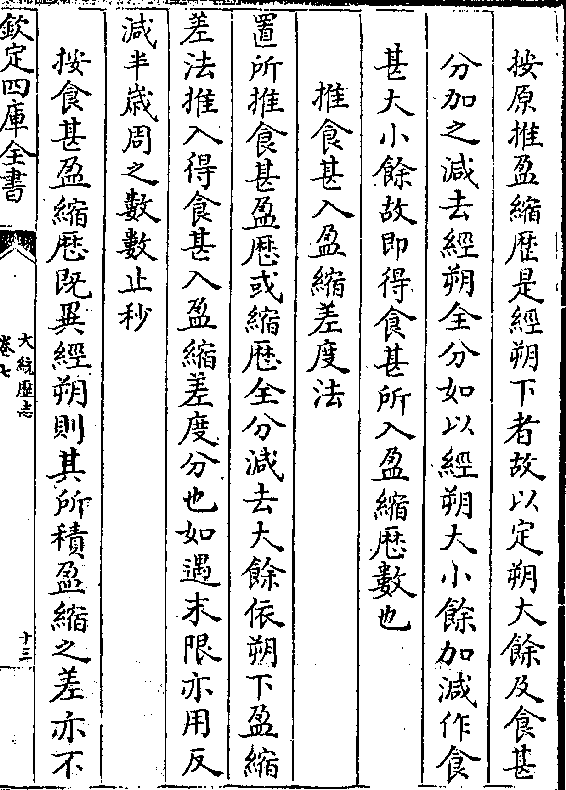 按原推盈縮歴是經朔下者故以定朔大餘及食甚
分加之減去經朔全分如以經朔大小餘加減作食
甚大小餘故即得食甚所入盈縮厯數也
推食甚入盈縮差度法
置所推食甚盈厯或縮厯全分減去大餘依朔下盈縮
差法推入得食甚入盈縮差度分也如遇末限亦用反
減半歲周之數數止秒
按食甚盈縮厯既異經朔則其所積盈縮之差亦不
欽定四庫全書
大統歴志
卷七
十三